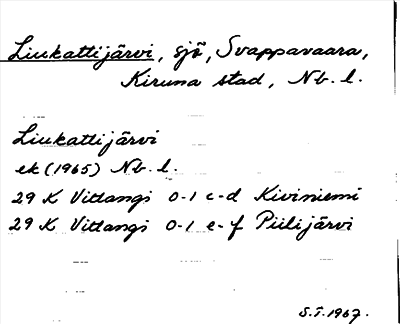 Liukattijärvi, sjö, Svappavaara,
Kiruna stad, Nb. l.
Liukattijärvi
ek (1965) Nb. l.
29 K Vittangi 0-1 c-d Kiviniemi
29 K Vittangi 0-1 e-f Piilijärvi
S.I. 1967.